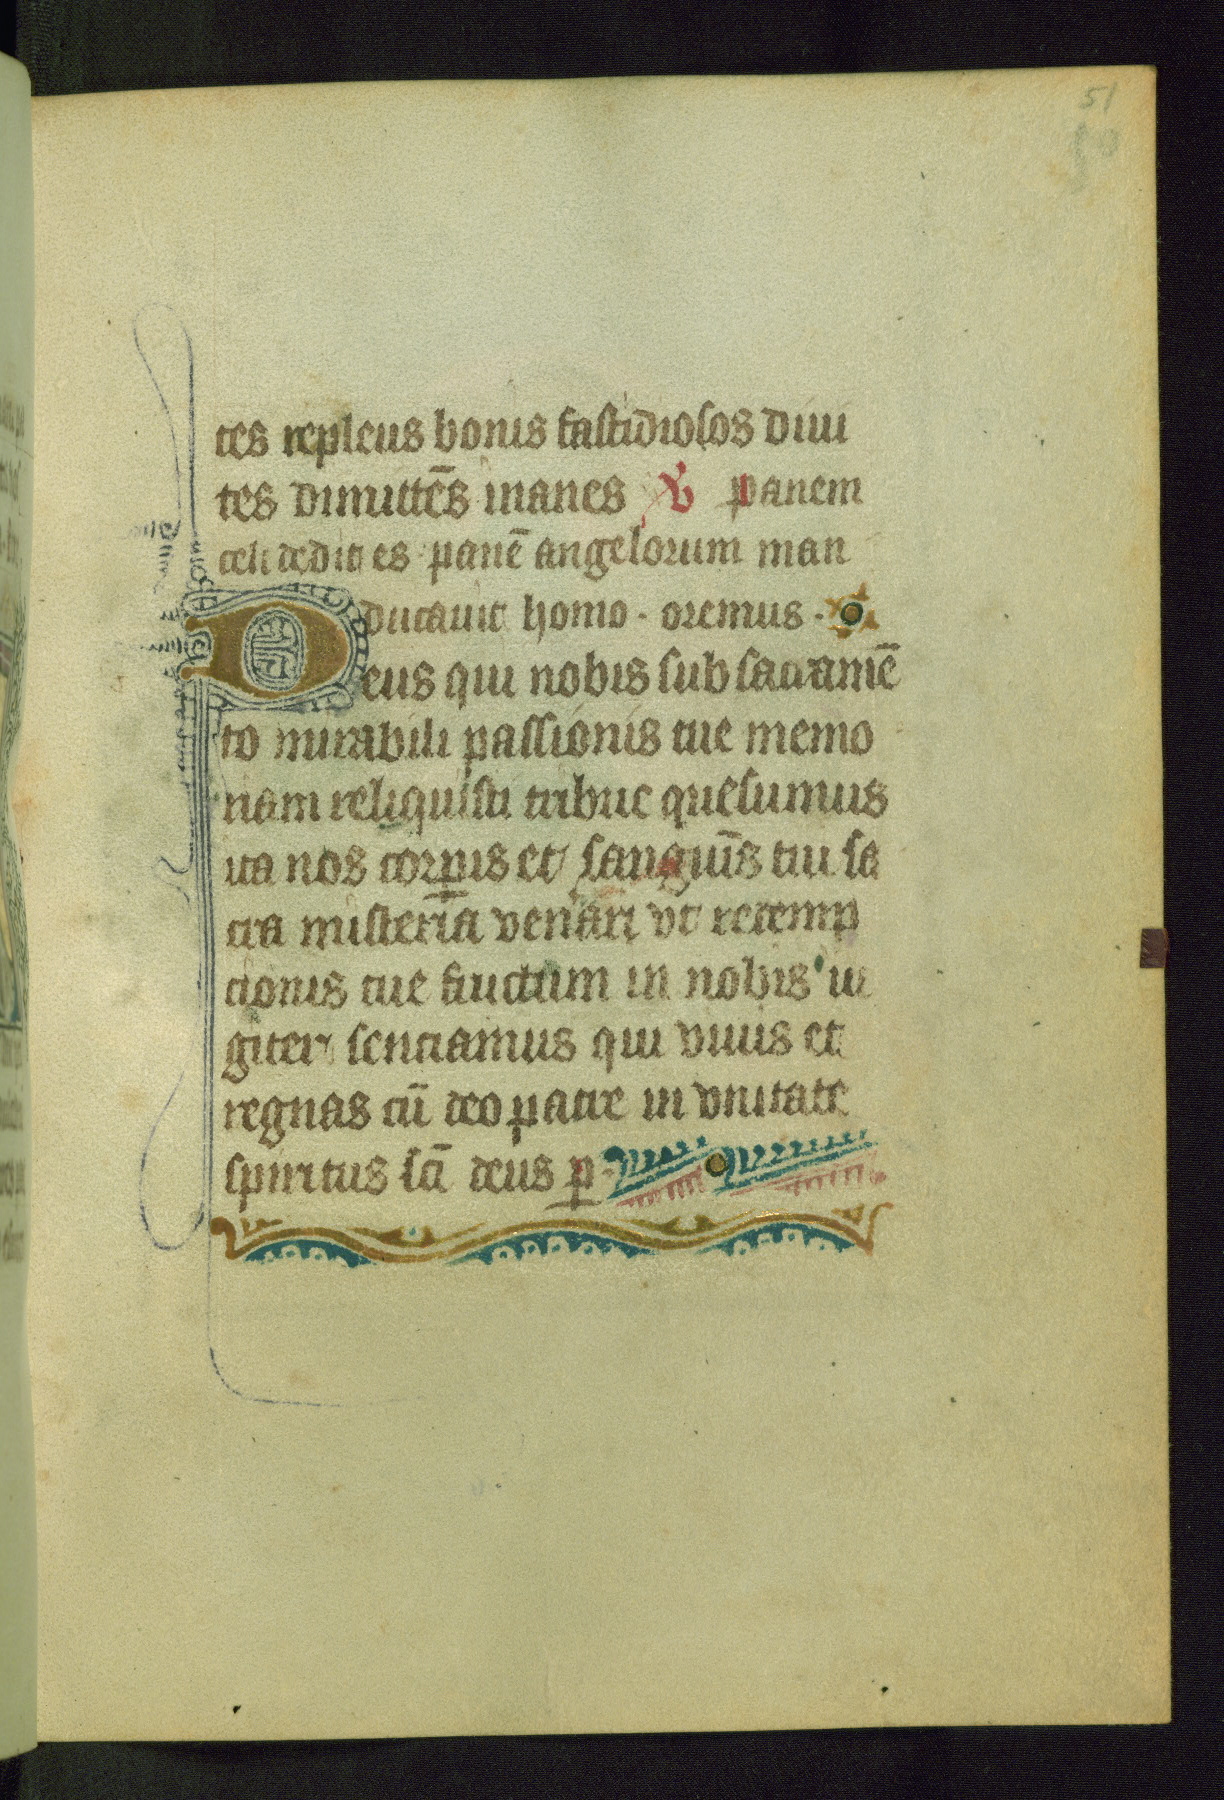 51
tes repleus bonis fastidiosos diui
tes dimittēs inanes ℣ panem
celi dedit es panē angelorum man
ducauit homo · oremus ·
Deus qui nobis sub sacramē
to mirabili passionis tue memo
riam reliquisti tribue quesumus
ita nos corꝑis et sanguīs tui sa
cra misteria venari vt redemp
cionis tue fructum in nobis iu
giter senciamus qui viuis et
regnas cū deo patre in vnitate
spiritus scī deus ꝑ